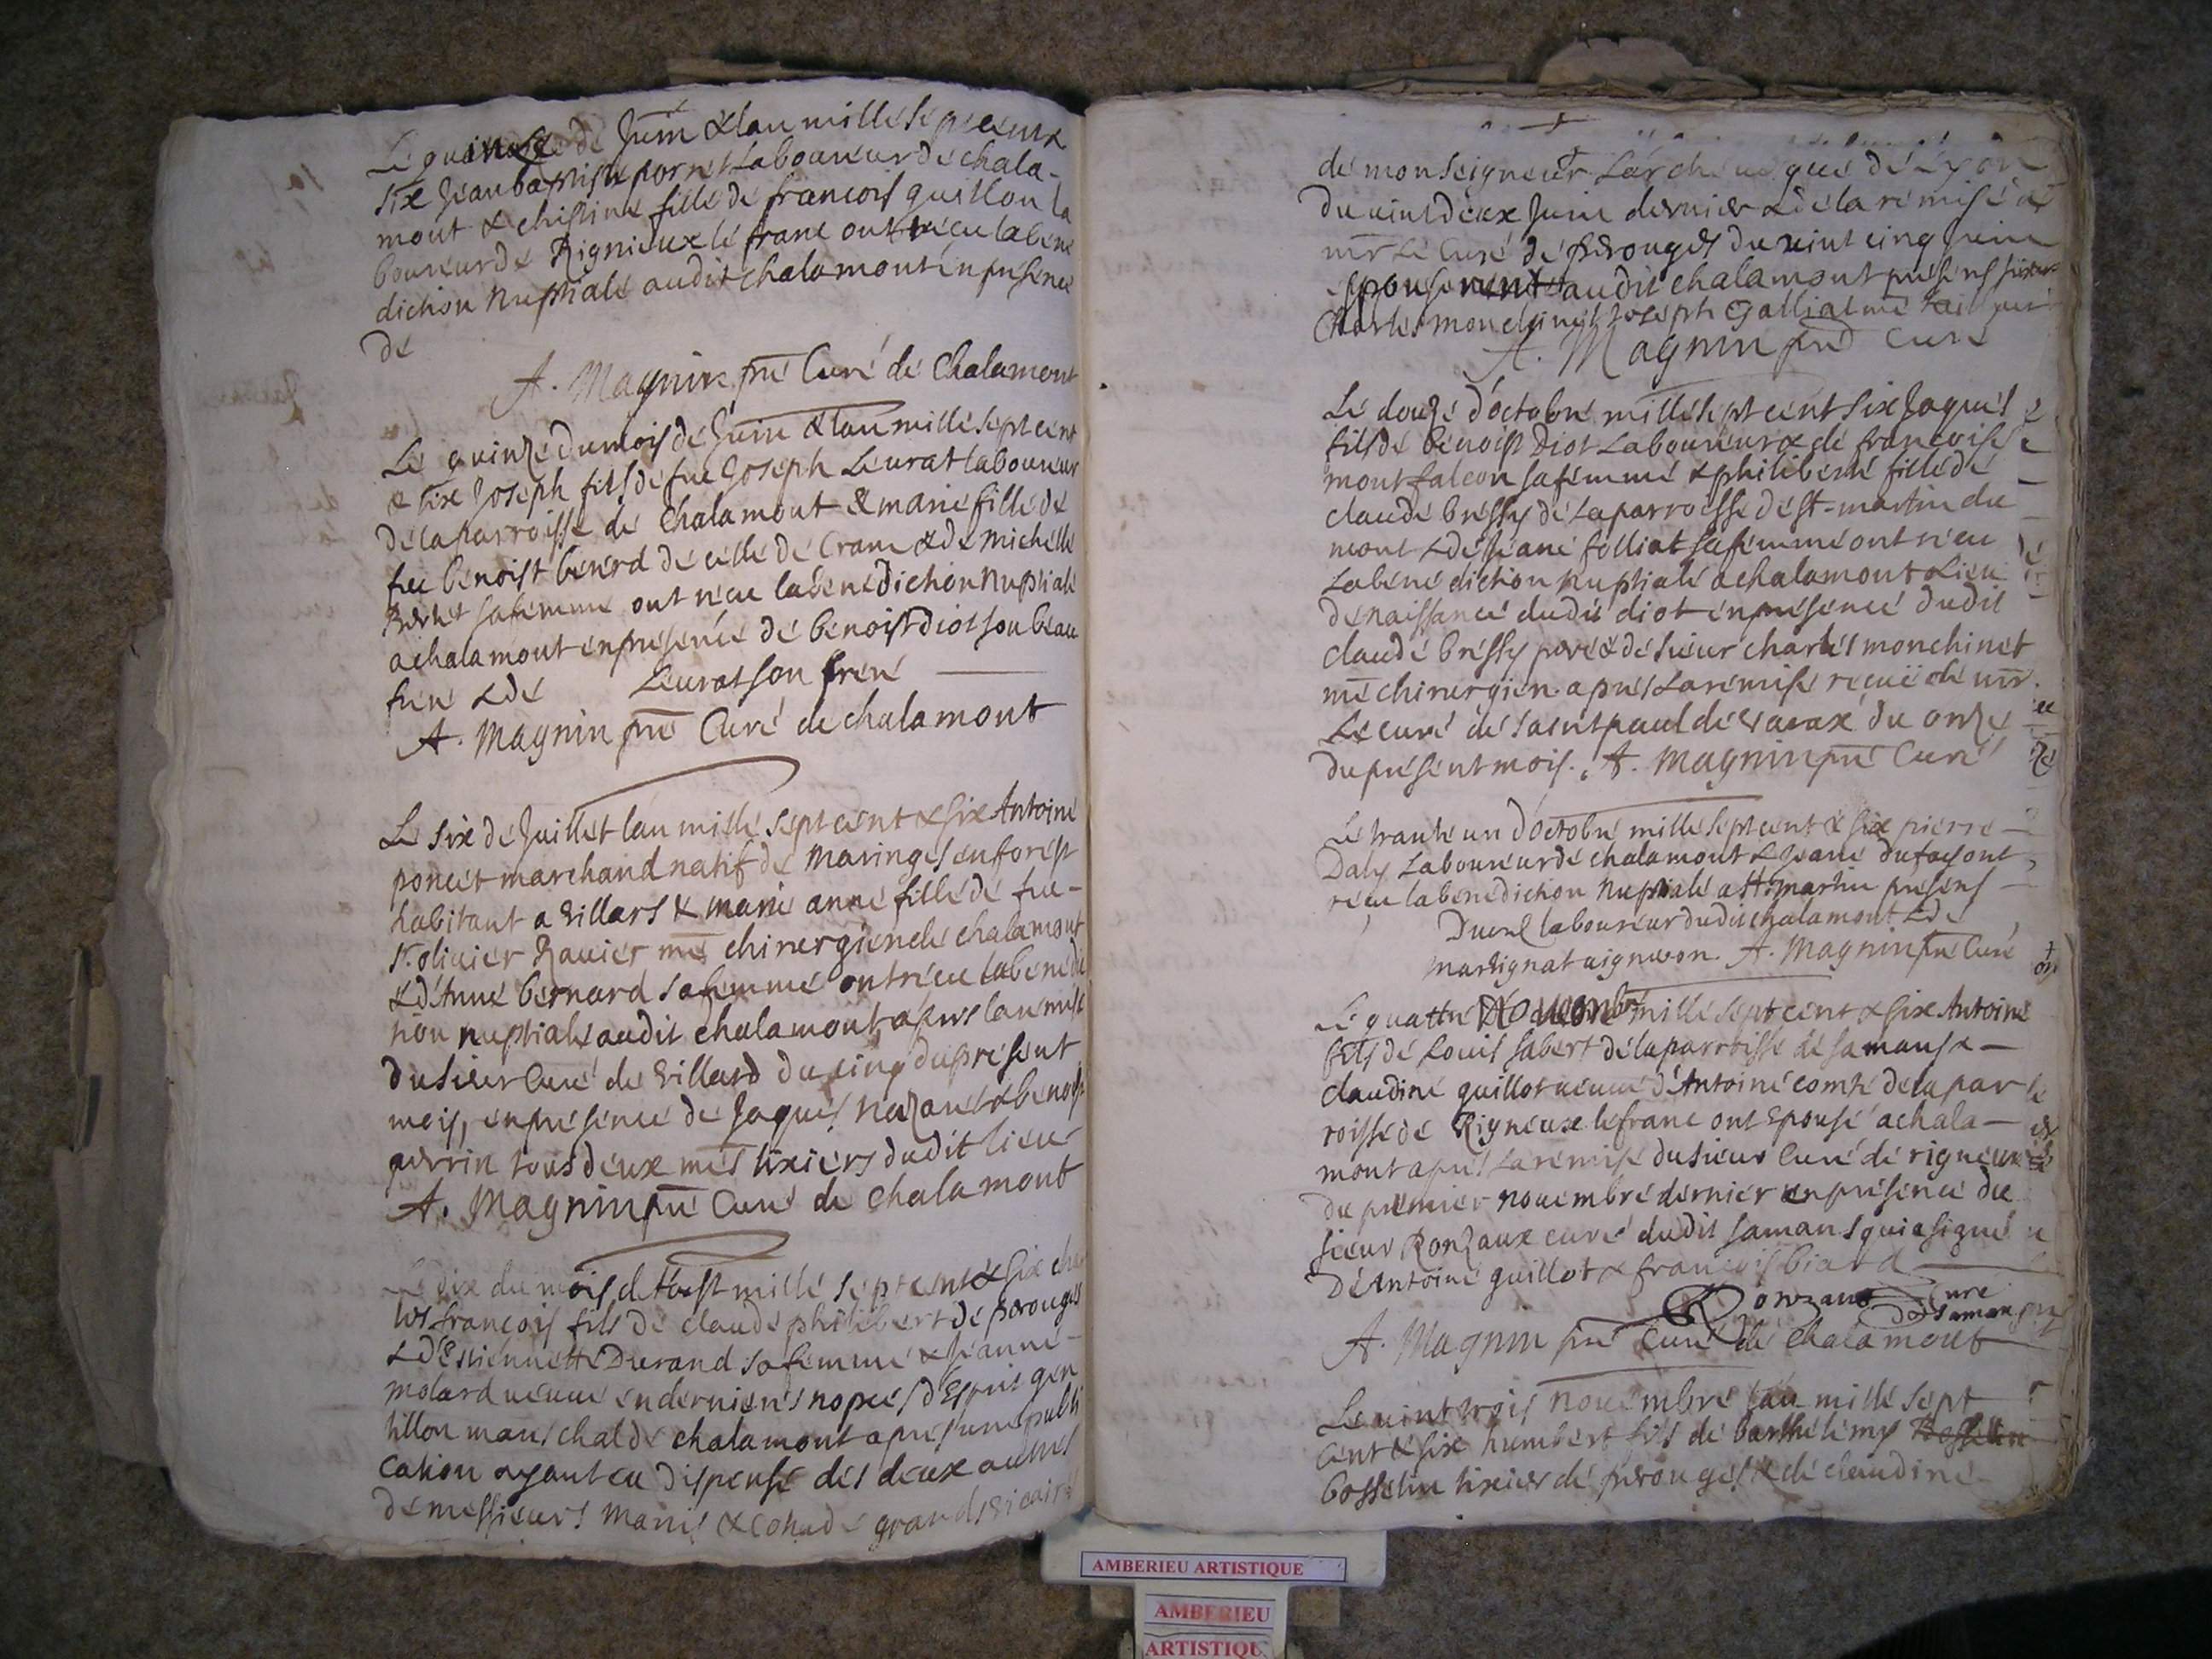 Le quinze de Juin & lan mille sept cent &
six Jean baptiste pornet Laboureur de chala-
mont & christine fille de francois guillon la
boureur de Rignieux le franc ont receu la bene
diction Nuptiale audit chalamont en presence
de
A. Magnin pre Curé de Chalamont
Le quinze du mois de Juin & lan mille sept cent
& six Joseph fils de feu Joseph Leurat laboureur
de la parroisse de Chalamont & marie fille de
feu benoist benerd de celle de Crans & de michelle
sa femme ont receu la benediction Nuptiale
a chalamont en presence de benoist diot son beau
frere & de Leurat son frere
A. Magnin pre Curé de chalamont
Le six de Juillet lan mille sept cent & six Antoine
poncet marchand natif de Maringes en forest
habitant a Villars & marie anne fille de feu-
Sr. olivier Ravier me chirurgien de chalamont
& d'Anne bernard sa femme ont receu la benedi
tion nuptiale audit chalamont, apres la remise
du sieur Curé de Villard du cinq du present
mois, en presence de Jaques Nazaret & benoist
perrin tous deux mes tixiers dudit lieu
A. Magnin pre Curé de Chalamont
Le dix du mois d'Aoust mille sept cent & six char
les françois fils de claude philibert de perouges
& d'Estiennette Durand sa femme & Jeanne-
molard veuve en dernieres nopces d'Esprit gen
tillon mareschal de chalamont apres une publi
cation ayant eu dispense des deux autres
de messieurs Manis & Cohade grands vicaires
de monseigneur L'archeveque de Lyon
du vint deux Juin dernier & de la remise de
mr Le Curé de perouges du vint cinq Juin
epouserent audit chalamont presens sieur
Charles monchinet Joseph Galliat me tailleur
A. Magnin pre Curé
Le douze d'octobre mille sept cent six Jaques
fils de benoist Diot Laboureur & de francoise
montfalcon sa femme & philiberte fille de
claude bressy de la parroisse de st-martin du
mont & de Jeane folliat sa femme ont receu
La benediction nuptiale a chalamont Lieu
de naissance dudit diot en presence dudit
claude bressy pere & de sieur charles monchinet
me chirurgien. apres la remise reçuë de mr.
Le curé de saint paul de varax du onze
du present mois. A. Magnin pre Curé
Le trante un d'octobre mille sept cent & six pierre-
Daly Laboureur de chalamont & Jeane dufay ont
receu la benediction Nuptiale a st. martin presens
laboureur dudit chalamont & de
martignat vigneron. A. Magnin pre Curé
Le quattre Novembre mille sept cent & six Antoine
fils de Louis Jabert de la parroisse de samans &-
claudine guillot veuve d'Antoine comte de la par
roisse de Rigneux le franc ont Epousé a chala-
mont apres La remise du sieur Curé de rigneux
du premier novembre dernier en presence du
sieur Ronzaux curé dudit samans qui a signé
d'Antoine guillot & françois biard
Ronzaux Curé
de samans
A. Magnin pre Curé de Chalamont
Le vint trois novembre lan mille sept
cent & six humbert fils de barthelemy Bosselin
bosselin tixier de perouges & de claudine
AMBERIEU ARTISTIQUE
AMBERIEU
ARTISTIQU